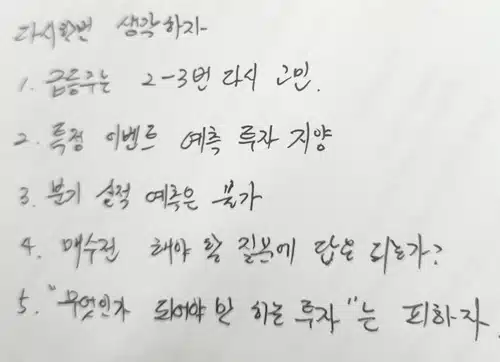 다시한번 생각하자
1. 급등주는 2-3번 다시 고민.
2. 특정 이벤트 예측 투자 지양
3. 분기 실적 예측은 불가
4. 매수전 해야 할 질문에 답은 되는가?
5. "무엇인가 되어야만 하는 투자"는 피하자